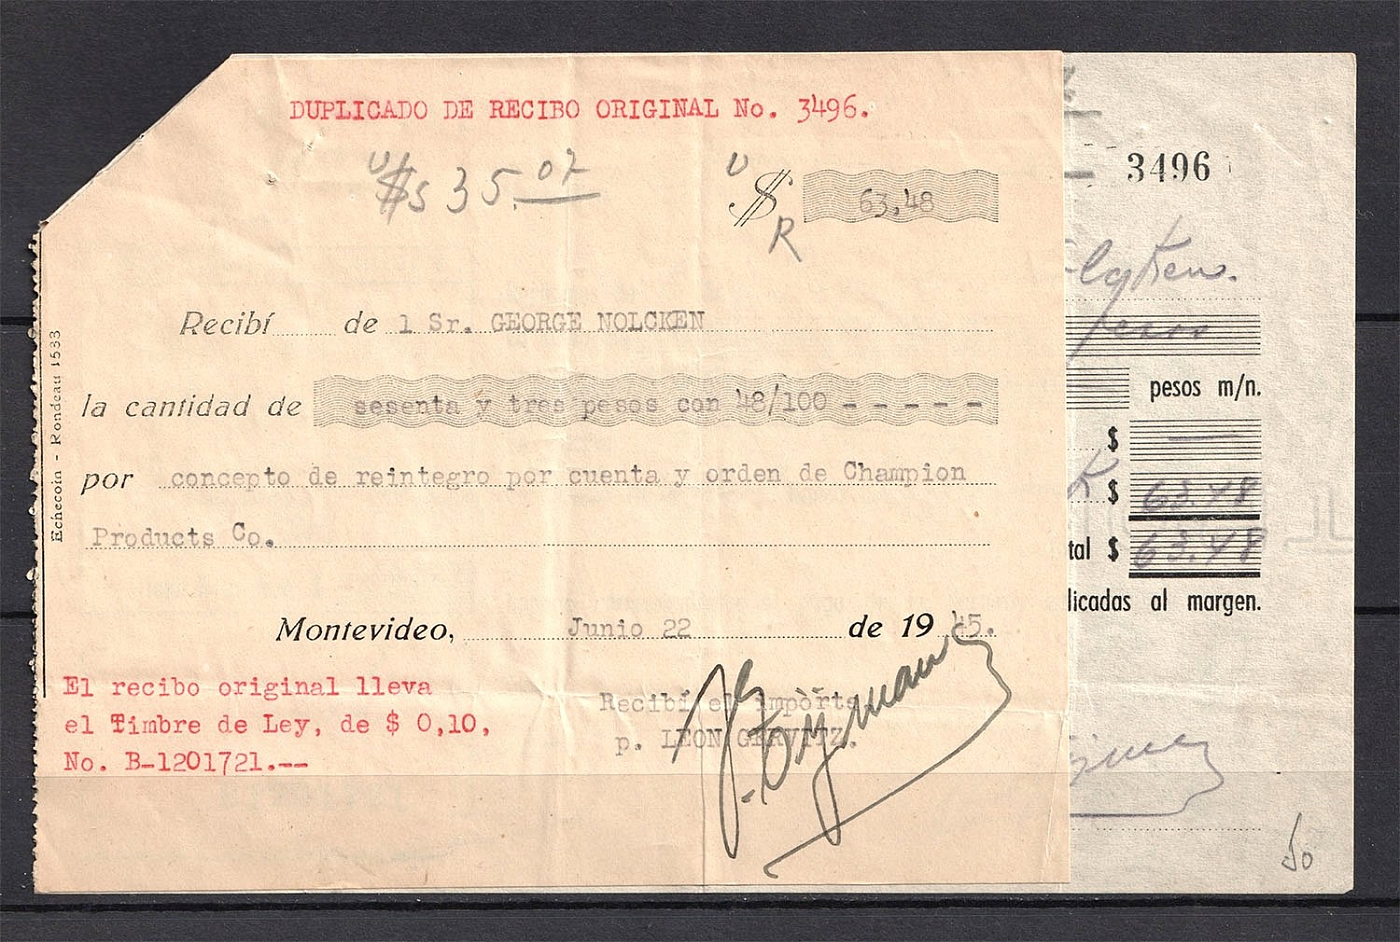 DUPLICADO DE RECIBO ORIGINAL No. 3496.
U$s 35.07
U$R 63,48
Recibí de l Sr. GEORGE NOLCKEN
la cantidad de sesenta y tres pesos con 48/100 - - - - -
por concepto de reintegro por cuenta y orden de Champion
Products Co.
Montevideo, Junio 22 de 19 45.
El recibo original lleva
el Timbre de Ley, de $ 0,10,
No. B-1201721.--
Recibí el importe
p. LEON GERVITZ.
Echecoin - Rondeau 1533
3496
pesos
pesos m/n.
$ —
$ 63.48
tal $ 63.48
licadas al margen.
50